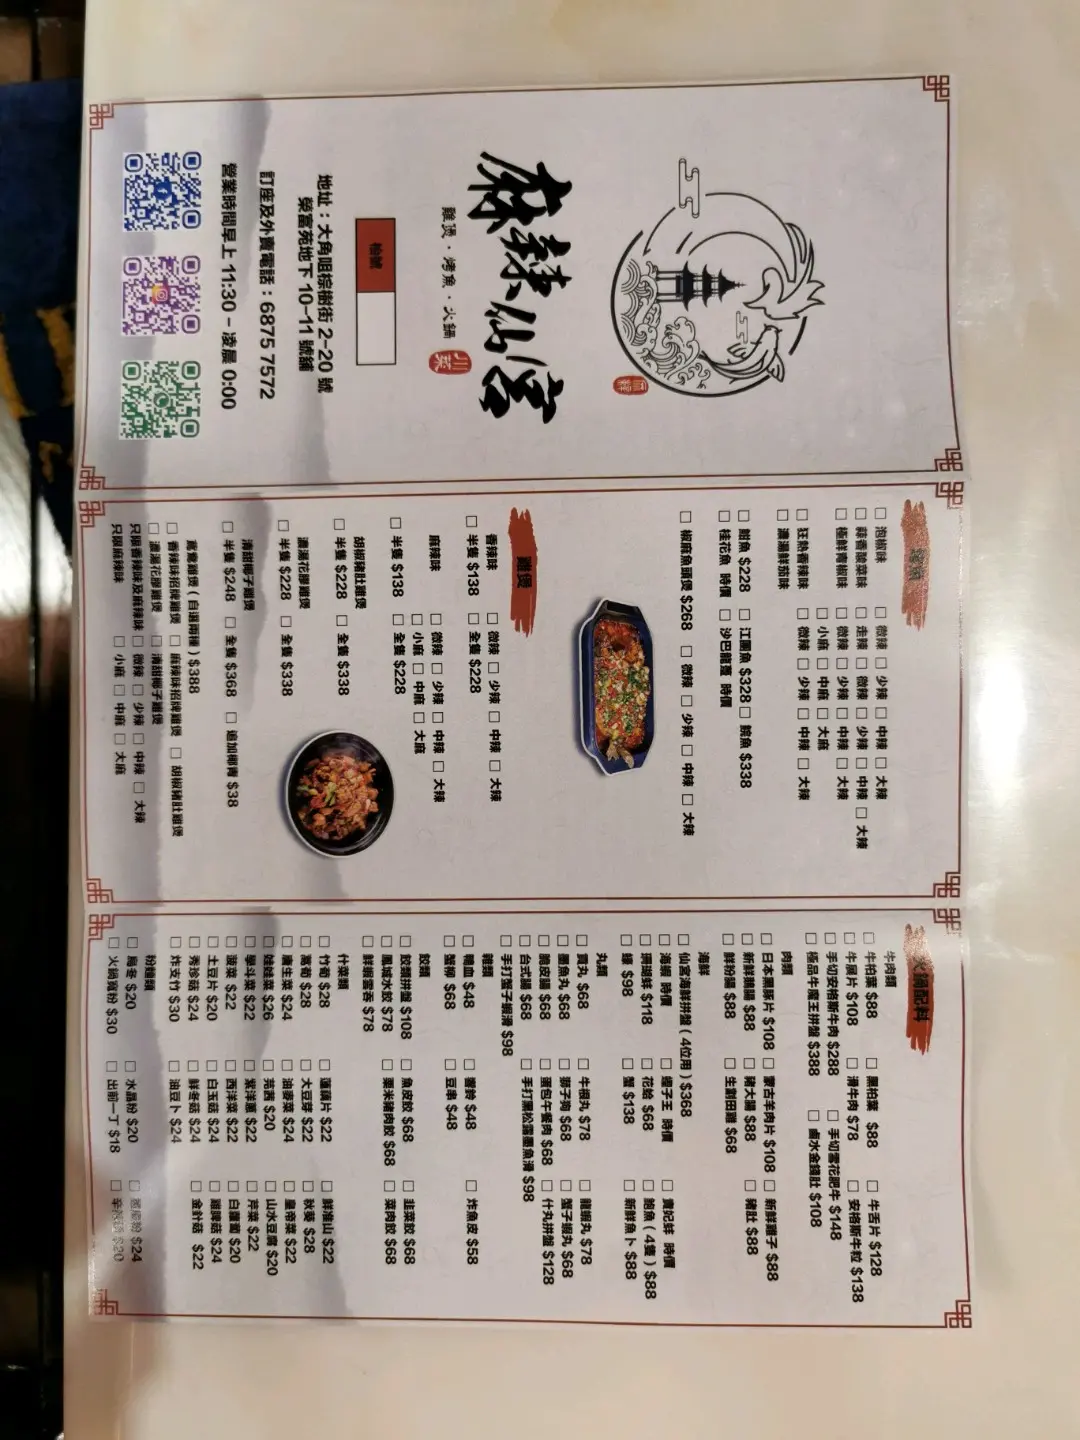 麻辣仙宮
雞煲·烤魚·火鍋
川菜
枱號
地址：大角咀棕樹街 2-20 號
榮富苑地下 10-11 號舖
訂座及外賣電話：6875 7572
營業時間早上 11:30 – 凌晨 0:00
烤魚
□ 泡椒味 □ 微辣 □ 少辣 □ 中辣 □ 大辣
□ 蒜香酸菜味 □ 走辣 □ 微辣 □ 少辣 □ 中辣 □ 大辣
□ 極鮮青椒味 □ 微辣 □ 少辣 □ 中辣 □ 大辣
□ 小麻 □ 中麻 □ 大麻
□ 狂熱香辣味 □ 微辣 □ 少辣 □ 中辣 □ 大辣
□ 濃湯鮮茄味
□ 鮒魚 $228 □ 江團魚 $328 □ 鯇魚 $338
□ 桂花魚 時價 □ 沙巴龍躉 時價
□ 椒麻魚頭煲 $268 □ 微辣 □ 少辣 □ 中辣 □ 大辣
雞煲
香辣味 □ 微辣 □ 少辣 □ 中辣 □ 大辣
□ 半隻 $138 □ 全隻 $228
麻辣味 □ 微辣 □ 少辣 □ 中辣 □ 大辣
□ 小麻 □ 中麻 □ 大麻
□ 半隻 $138 □ 全隻 $228
胡椒豬肚雞煲
□ 半隻 $228 □ 全隻 $338
濃湯花膠雞煲
□ 半隻 $228 □ 全隻 $338
清甜椰子雞煲
□ 半隻 $248 □ 全隻 $368 □ 追加椰青 $38
鴛鴦雞煲（自選兩種）$388
□ 香辣味招牌雞煲 □ 麻辣味招牌雞煲 □ 胡椒豬肚雞煲
□ 濃湯花膠雞煲 □ 清甜椰子雞煲
只限香辣味及麻辣味 □ 微辣 □ 少辣 □ 中辣 □ 大辣
只限麻辣味 □ 小麻 □ 中麻 □ 大麻
火鍋配料
牛肉類
□ 牛柏葉 $88 □ 黑柏葉 $88 □ 牛舌片 $128
□ 牛展片 $108 □ 滑牛肉 $78 □ 安格斯牛粒 $138
□ 手切安格斯牛肉 $288 □ 手切雪花肥牛 $148
□ 極品牛魔王拼盤 $388 □ 鹵水金錢肚 $108
肉類
□ 日本黑豚片 $108 □ 蒙古羊肉片 $108 □ 新鮮雞子 $88
□ 新鮮鵝腸 $88 □ 豬大腸 $88 □ 豬肚 $88
□ 鮮粉腸 $88 □ 生劏田雞 $68
海鮮
□ 仙宮海鮮拼盤（4位用）$368
□ 海蝦 時價 □ 蟶子王 時價 □ 貴妃蚌 時價
□ 珊瑚蚌 $118 □ 花蛤 $68 □ 鮑魚（4隻）$88
□ 蠔 $98 □ 蟹 $138 □ 新鮮魚卜 $88
丸類
□ 貢丸 $68 □ 牛根丸 $78 □ 龍蝦丸 $78
□ 墨魚丸 $68 □ 獅子狗 $68 □ 蟹子蝦丸 $68
□ 脆皮腸 $68 □ 蛋包午餐肉 $68 □ 什丸拼盤 $128
□ 台式腸 $68 □ 手打黑松露墨魚滑 $98
□ 手打蟹子蝦滑 $98
雜類
□ 鴨血 $48 □ 響鈴 $48 □ 炸魚皮 $58
□ 蟹柳 $68 □ 豆串 $48
餃類
□ 餃類拼盤 $108 □ 魚皮餃 $68 □ 韭菜餃 $68
□ 鳳城水餃 $78 □ 粟米豬肉餃 $68 □ 菜肉餃 $68
□ 鮮蝦雲吞 $78
什菜類
□ 竹筍 $28 □ 蓮藕片 $22 □ 鮮淮山 $22
□ 萵筍 $28 □ 大豆芽 $22 □ 秋葵 $28
□ 唐生菜 $24 □ 油麥菜 $24 □ 皇帝菜 $22
□ 娃娃菜 $26 □ 芫茜 $20 □ 山水豆腐 $20
□ 學斗菜 $22 □ 紫洋蔥 $22 □ 芹菜 $22
□ 菠菜 $22 □ 西洋菜 $22 □ 白蘿蔔 $20
□ 土豆片 $20 □ 白玉菇 $24 □ 雞髀菇 $24
□ 秀珍菇 $24 □ 鮮冬菇 $24 □ 金針菇 $22
□ 炸支竹 $30 □ 油豆卜 $24
粉麵類
□ 烏冬 $20 □ 水晶粉 $20 □ $24
□ 火鍋寬粉 $30 □ 出前一丁 $18 □ 辛辣麵 $20